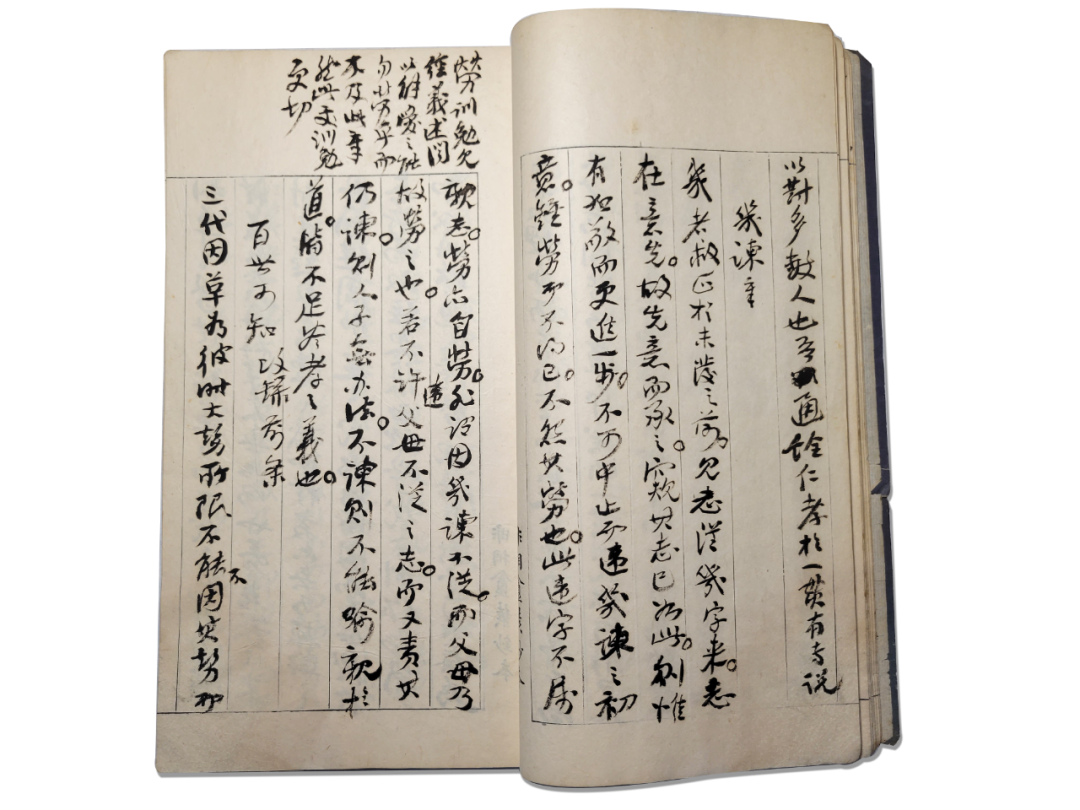 以對多數人也吾通詮仁孝於一貫有專說
幾諫章
幾者救正於未發之前見志從幾字来志
在意先故先意而承之窺其志已如此則惟
有起敬而更進一步不可中止而違幾諫之初
意雖勞而不得已不怨其勞也此違字不屬
親志勞亦自勞死謂因幾諫不從而父母乃
故勞之也若不許違父母不從之志而又責其
仍諫則人子無办法不諫則不能喻親於
道皆不足答孝之義也
百世可知 改歸前条
三代因革为彼时大勢所限不能不因其勢而
勞訓勉見
經義述聞
以解愛之能
勿勞乎而
未及此章
然此文訓勉
更切